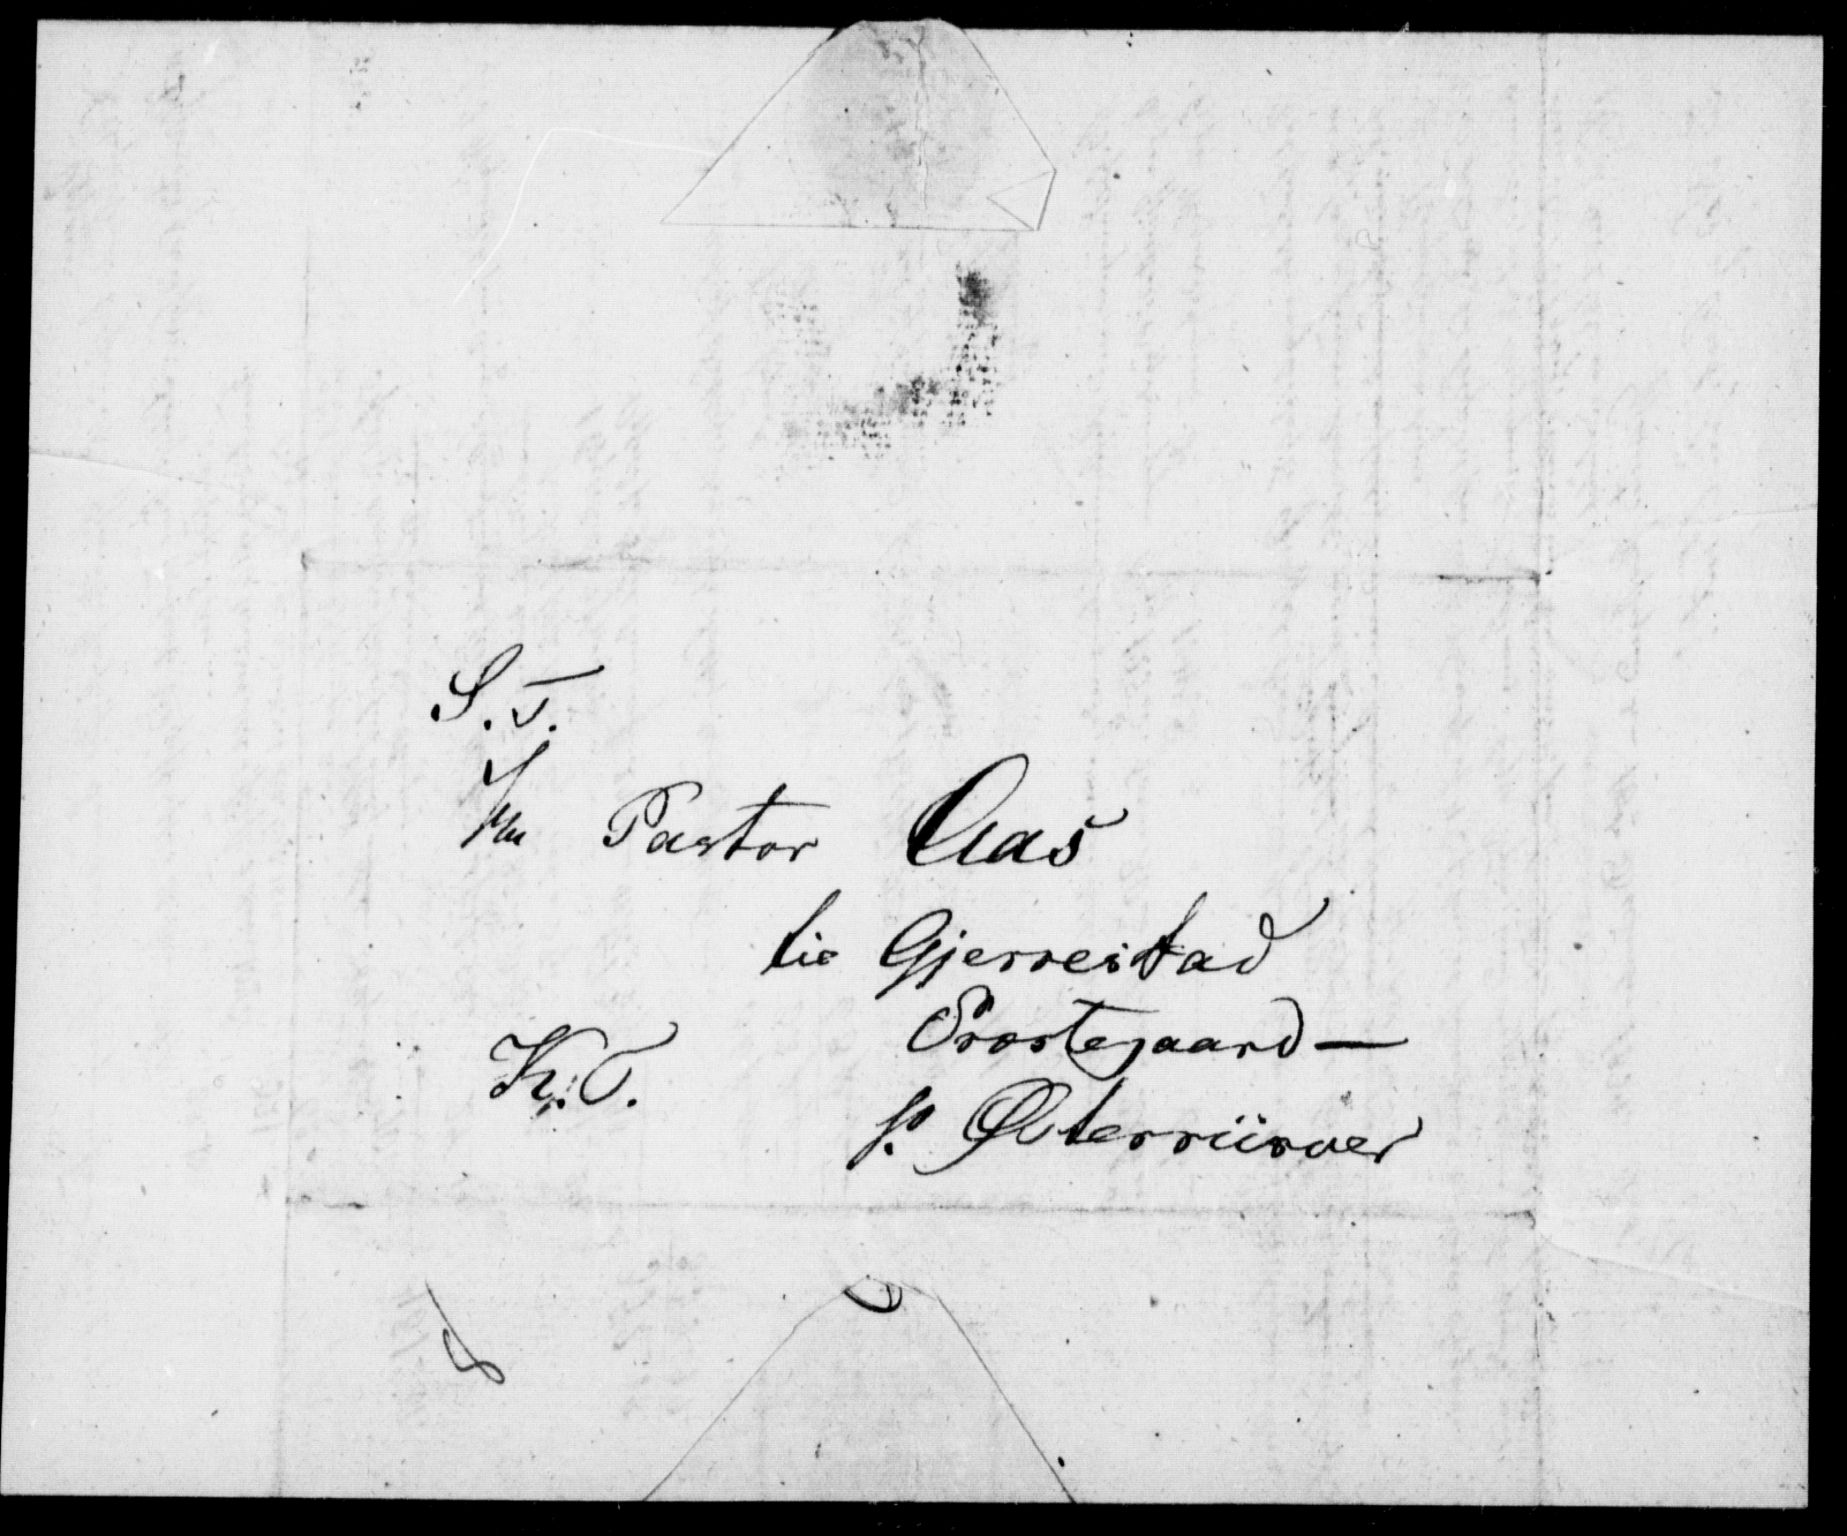 S. T.
Hr Pastor Aas
til Gjerrestad
Prostegaard —
K. T.
p. Østerriisøer
8